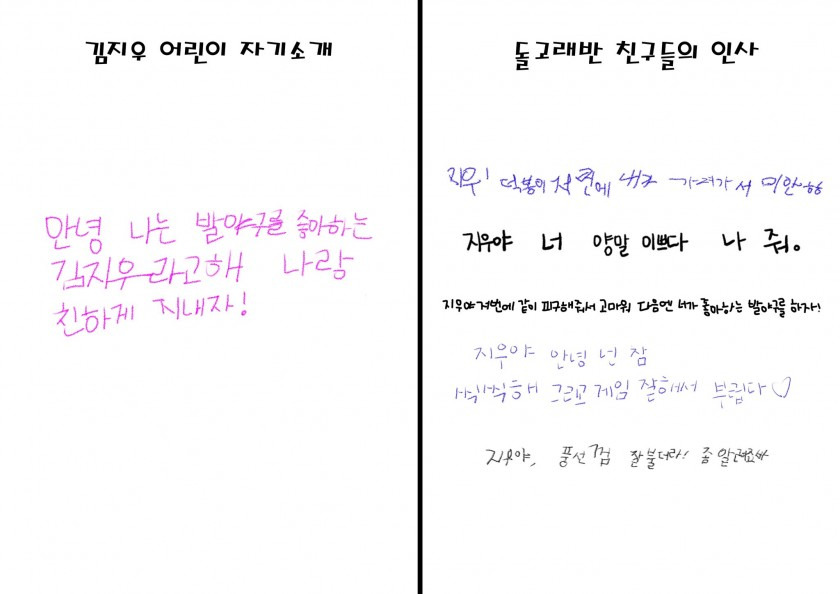 김지우 어린이 자기소개
안녕 나는 발야구를 좋아하는
김지우라고해 나랑
친하게 지내자!
돌고래반 친구들의 인사
지우! 떡볶이 저번에 내가 가져가서 미안해
지우야 너 양말 이쁘다 나 줘。
지우야 저번에 같이 피구해줘서 고마워 다음엔 너가 좋아하는 발야구를 하자!
지우야 안녕 넌 참
씩씩해 그리고 게임 잘해서 부럽다♡
지우야, 풍선껌 잘 불더라! 좀 알려줘봐